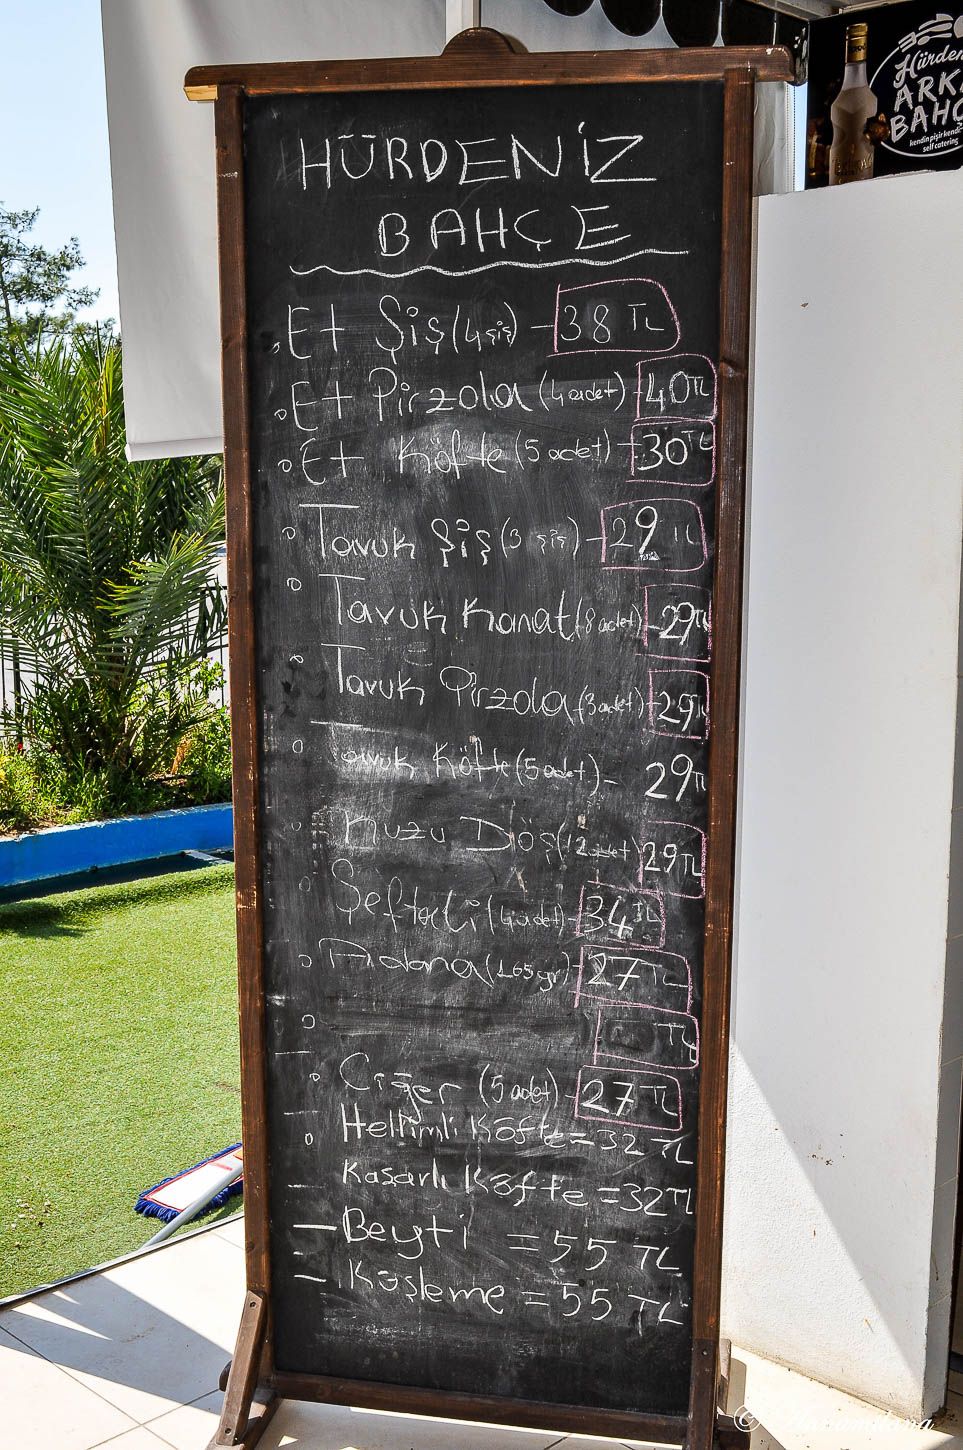 HÜRDENİZ
BAHÇE
Et Şiş (4 şiş) - 38 TL
Et Pirzola (4 adet) - 40 TL
Et Köfte (5 adet) - 30 TL
Tavuk Şiş (3 şiş) - 29 TL
Tavuk Kanat (8 adet) - 29 TL
Tavuk Pirzola (3 adet) - 29 TL
Tavuk Köfte (5 adet) - 29 TL
Kuzu Döş (12 adet) 29 TL
Şeftali (4 adet) - 34 TL
Adana (165 gr) - 27 TL
TL
Ciğer (5 adet) - 27 TL
Hellimli Köfte = 32 TL
Kaşarlı Köfte = 32 TL
Beyti = 55 TL
Küşleme = 55 TL
Hürden
ARKA
BAHÇ
kendin pişir kendi
self catering